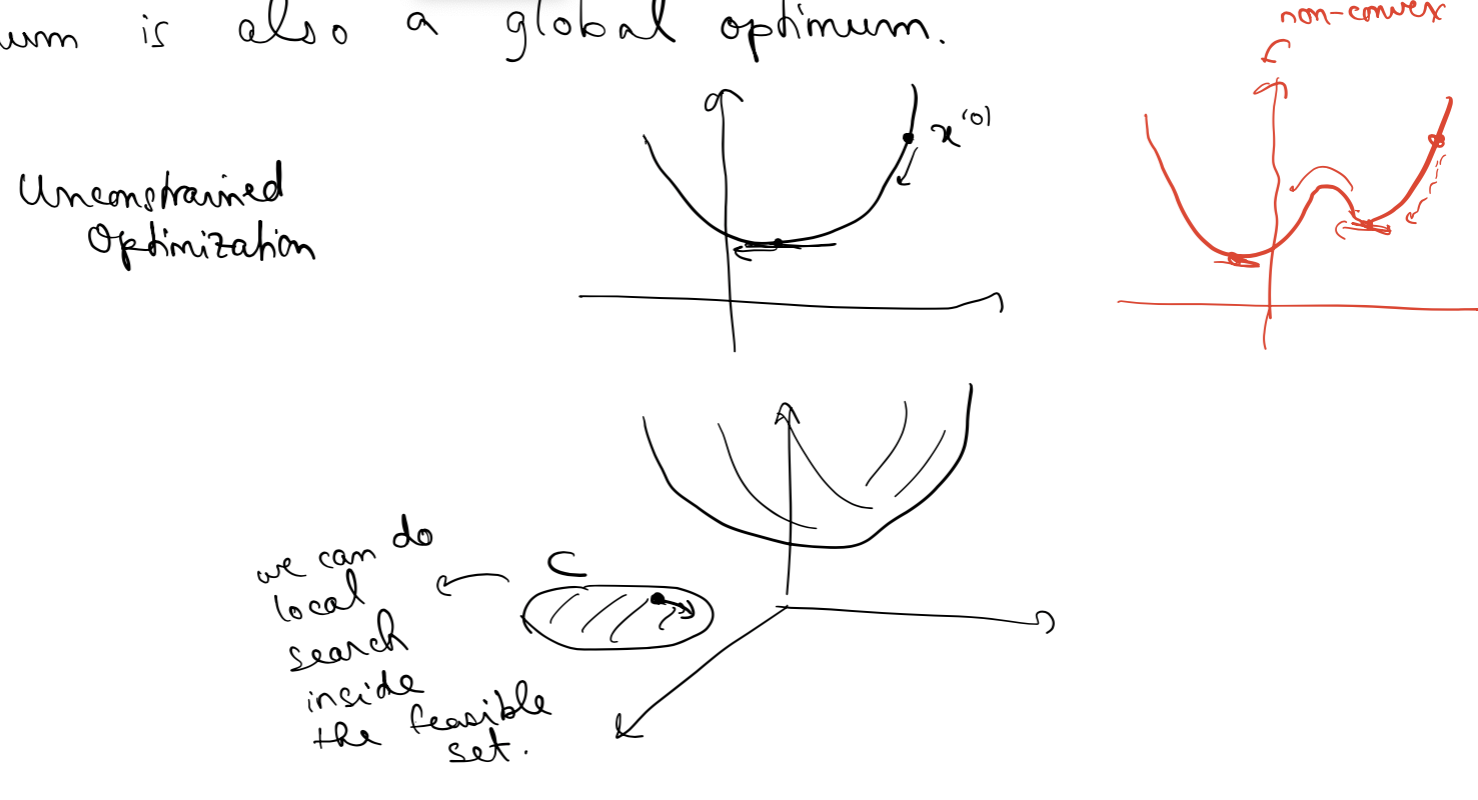 is also a global optimum.
non-convex
x^(0)
Unconstrained
Optimization
C
we can do
local
search
inside
the feasible
set.